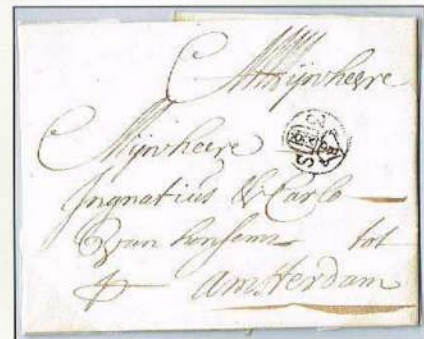 Mijnheere
Mijnheere
Ingnatius & Carlo
Van honsem tot
Amsterdam